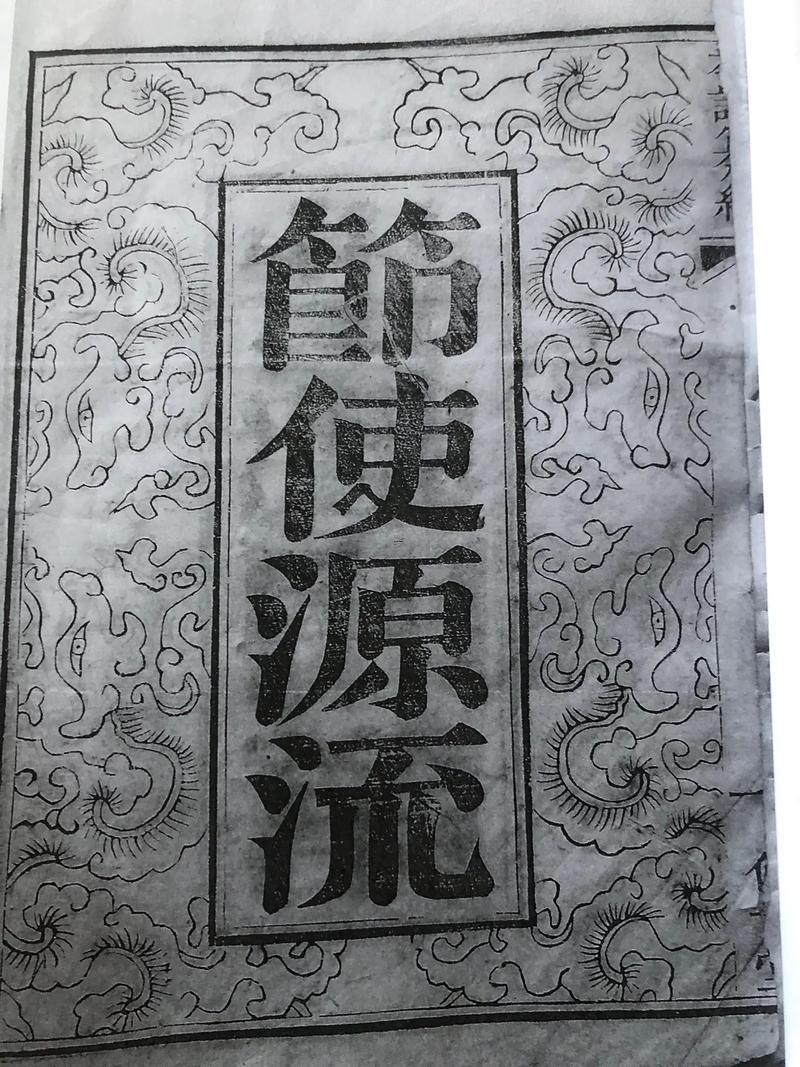 節使源流